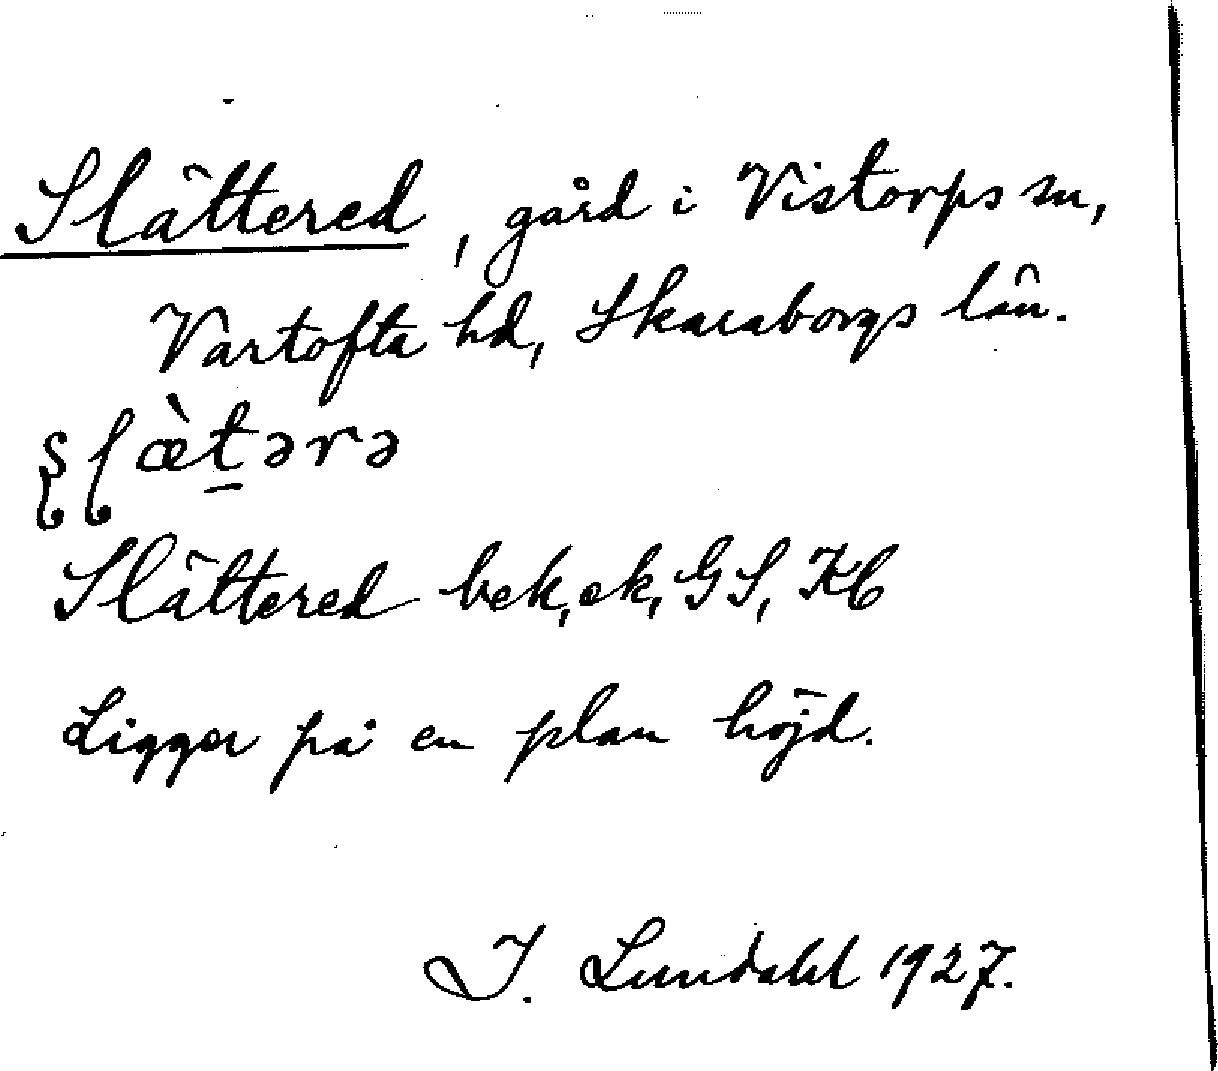 Slättered, gård i Vistorps sn,
Vartofta hd, Skaraborgs län.
ʂɭæ̀ṯərə
Slättered bek, ek, GS, Kb
Ligger på en plan höjd.
I. Lundahl 1927.